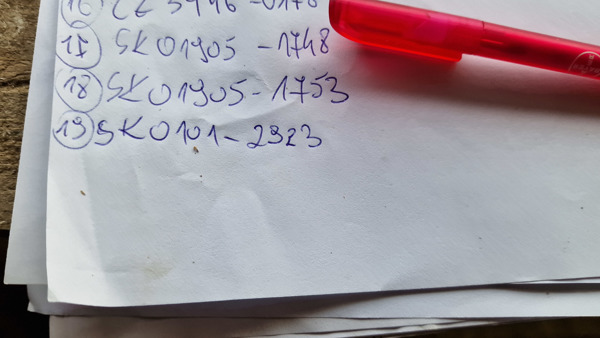 17 SK01905-1748
18 SK01905-1753
19 SK0101-2923